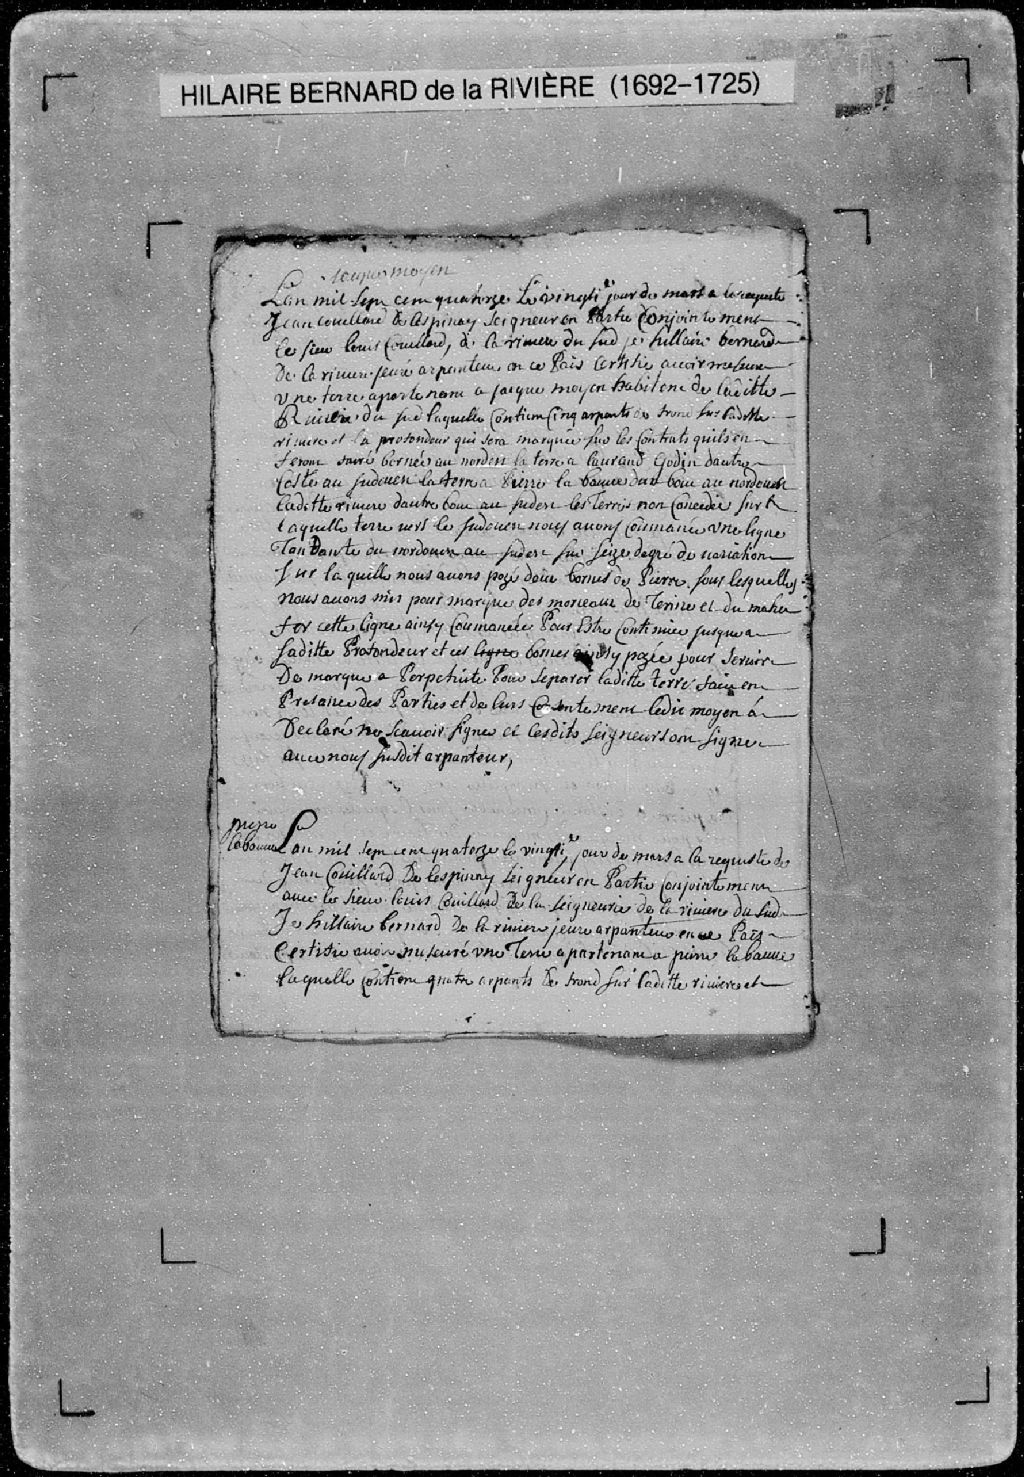 HILAIRE BERNARD de la RIVIÈRE (1692–1725)
Jaque moyen
Lan mil sept cent quatorze Le vingti jour de mars a la requeste
Jean Couillard De Lespinay Seigneur en Partie Conjointement
le sieur louis Couillard, de la riviere du sud je hillaire bernard
De la riviere juré arpenteur en ce Païs Certifie avoir mesuré
vne terre apartenant a jacque moyen habitent de laditte
Riviere du sud laquelle Contient Cinq arpents de frond sur laditte
riviere et la profondeur qui sera marquée sur les Contrats quils en
feront faire bornée au nordest la terre a laurand Godin dautre
Costé au sudouest la terre a Pierre la baume dun bout au nordouest
laditte riviere dautre bout au sudest les Terres non Concedée sur
laquelle terre vers le sudouest nous avons Coumancé vne ligne
Tandante du nordouest au sudest sur seize degré de variation
sur laquelle nous avons pozé deux bornes de Pierre sous lesquelles
nous avons mis pour marque des morceaux de Terine et du mache
fer cette ligne ainsy Coumancée Pour Estre Continuée jusqua
saditte Profondeur et ces ligne bornes ainsy pozée pour servire
De marque a Perpetuite Pour separer laditte terre faict en
Presance des Parties et de leurs Consentement ledit moyen a
Declaré ne scavoir signer et lesdits seigneurs ont signer
avec nous susdit arpanteur,
pierre
labaume
Lan mil sept cent quatorze le vingti jour de mars a la requeste de
Jean Couillard De lespinay seigneur en Partie Conjointement
avec le sieur louis Couillard De la seigneurie de la riviere du sud
Je hillaire bernard De la riviere juré arpanteur en ce Païs
Certifie avoir mesuré vne Terre apartenant a pierre la baume
laquelle Contient quatre arpents de frond sur laditte riviere et